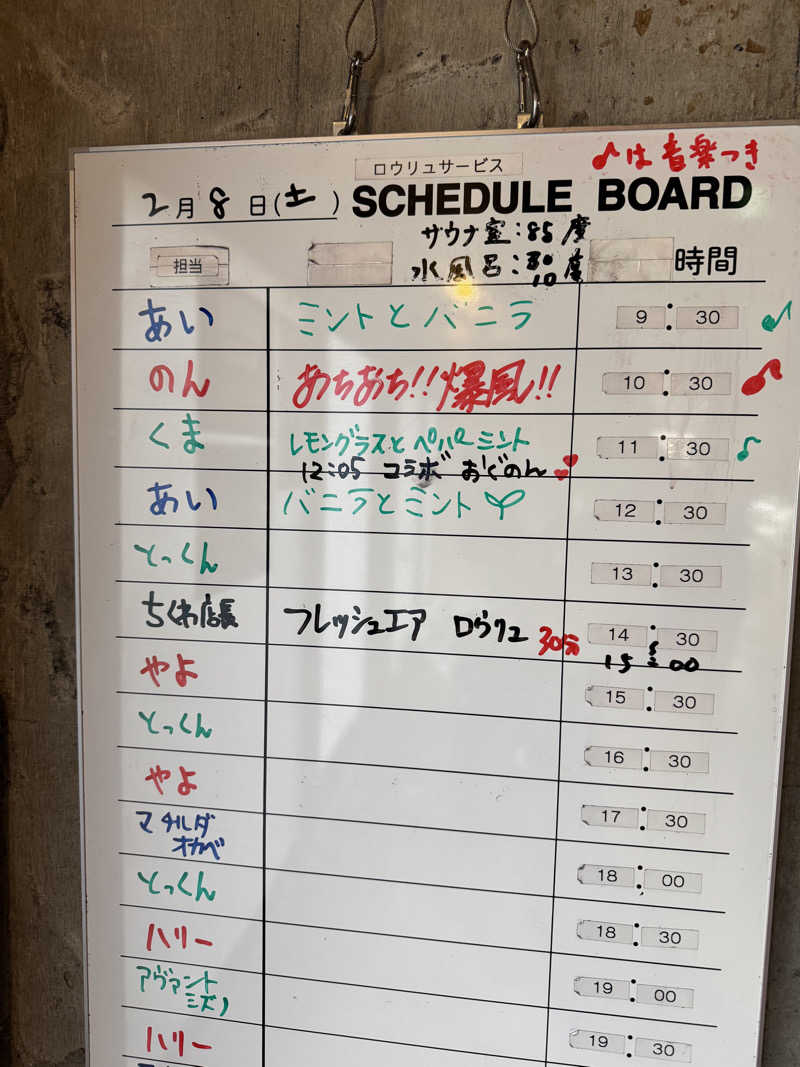 ♪は音楽つき
ロウリュサービス
2月8日(土) SCHEDULE BOARD
サウナ室:85度
水風呂:30 10度
担当 時間
あい ミントとバニラ 9:30 ♪
のん あちあち!!爆風!! 10:30 ♪
くま レモングラスとペパーミント 11:30 ♪
12:05 コラボ おぐのん
あい バニラとミント 12:30
とっくん 13:30
ちくわ店長 フレッシュエア ロウリュ 30分 14:30
〜
15:00
やよ 15:30
とっくん 16:30
やよ 17:30
マチルダ
オカベ 18:00
とっくん 18:30
ハリー 19:00
アヴァント
ミズノ 19:30
ハリー